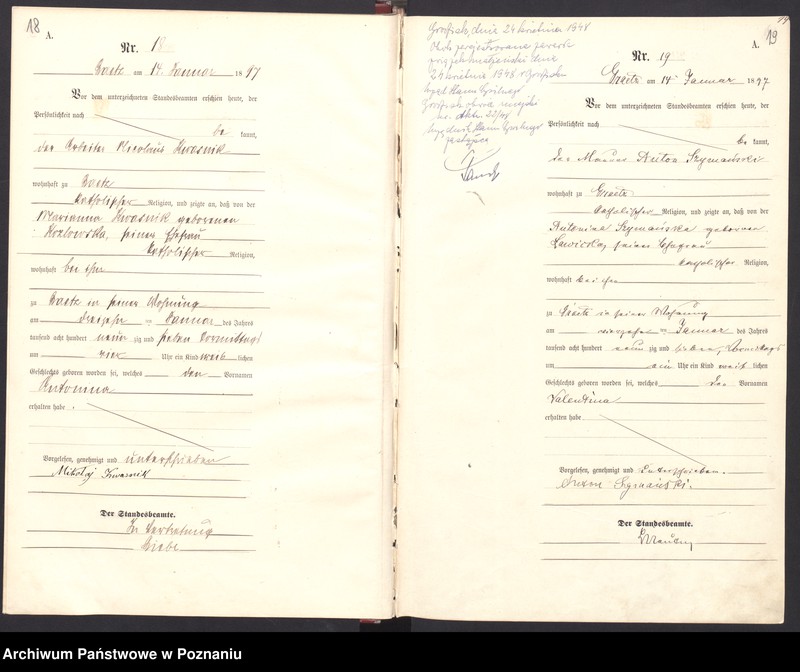 18
A.
Nr. 18
Graetz am 14. Januar 1897
Vor dem unterzeichneten Standesbeamten erschien heute, der
Persönlichkeit nach
be kannt,
der Arbeiter Nicolaus Kwasnik
wohnhaft zu Graetz
katholischer Religion, und zeigte an, daß von der
Marianna Kwasnik geborenen
Kozlowska, seiner Ehefrau
katholischer Religion,
wohnhaft bei ihm
zu Graetz in seiner Wohnung
am dreizehnten Januar des Jahres
tausend acht hundert neun zig und sieben Vormittags
um vier Uhr ein Kind weib lichen
Geschlechts geboren worden sei, welches den Vornamen
Antonina
erhalten habe.
Vorgelesen, genehmigt und unterschrieben
Mikołaj Kwasnik
Der Standesbeamte.
In Vertretung
19
A.
Nr. 19
Graetz am 14 Januar 1897
Vor dem unterzeichneten Standesbeamten erschien heute, der
Persönlichkeit nach
be kannt,
der Maurer Anton Szymański
wohnhaft zu Graetz
katholischer Religion, und zeigte an, daß von der
Antonina Szymańska geborenen
Ławicka, seiner Ehefrau
katholischer Religion,
wohnhaft bei ihm
zu Graetz in seiner Wohnung
am vierzehnten Januar des Jahres
tausend acht hundert neun zig und sieben, Vormittags
um ein Uhr ein Kind weib lichen
Geschlechts geboren worden sei, welches den Vornamen
Valentina
erhalten habe
Vorgelesen, genehmigt und unterschrieben.
Der Standesbeamte.
dnia 24 kwietnia 1948
24 kwietnia 1948
Archiwum Państwowe w Poznaniu